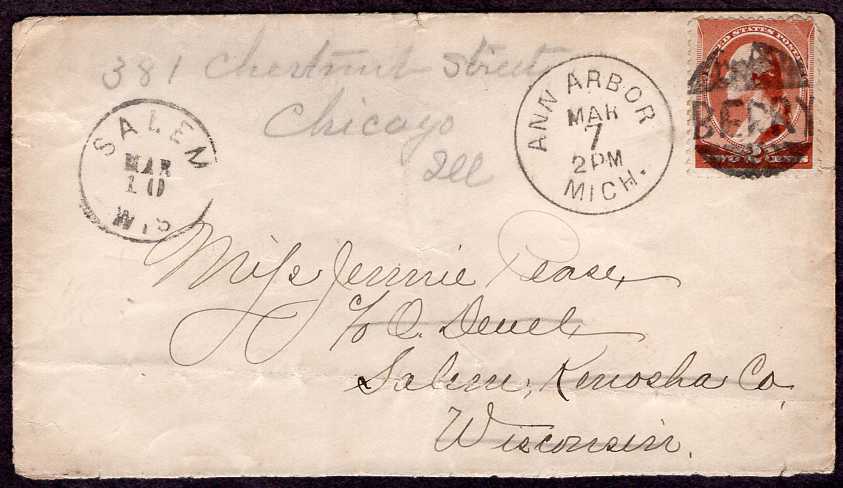 381 Chestnut Street
Chicago
Ill
SALEM
MAR
10
WIS
ANN ARBOR
MAR
7
2PM
MICH.
D STATES POSTA
BERRY
TWO CENTS
Miss Jennie Pease,
c/o O. Deuel,
Salem, Kenosha Co
Wisconsin.